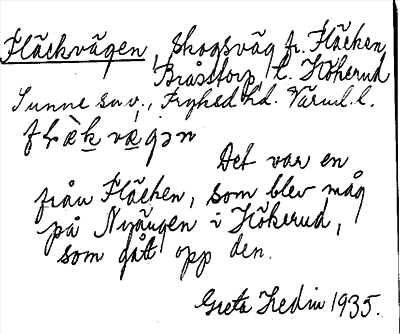 Fläckvägen, skogsväg fr. Fläcken,
Bråstorp t. Hökerud
Sunne sn v., Fryksd. hd. Värml. l.
Det var en
från Fläcken, som blev måg
på Nyängen i Hökerud,
som gått opp den.
Greta Hedin 1935.